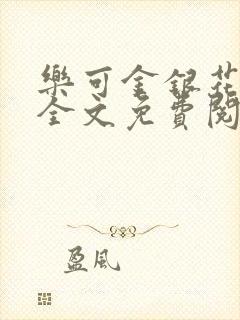 樂可金銀花
全文免費閱
盈風